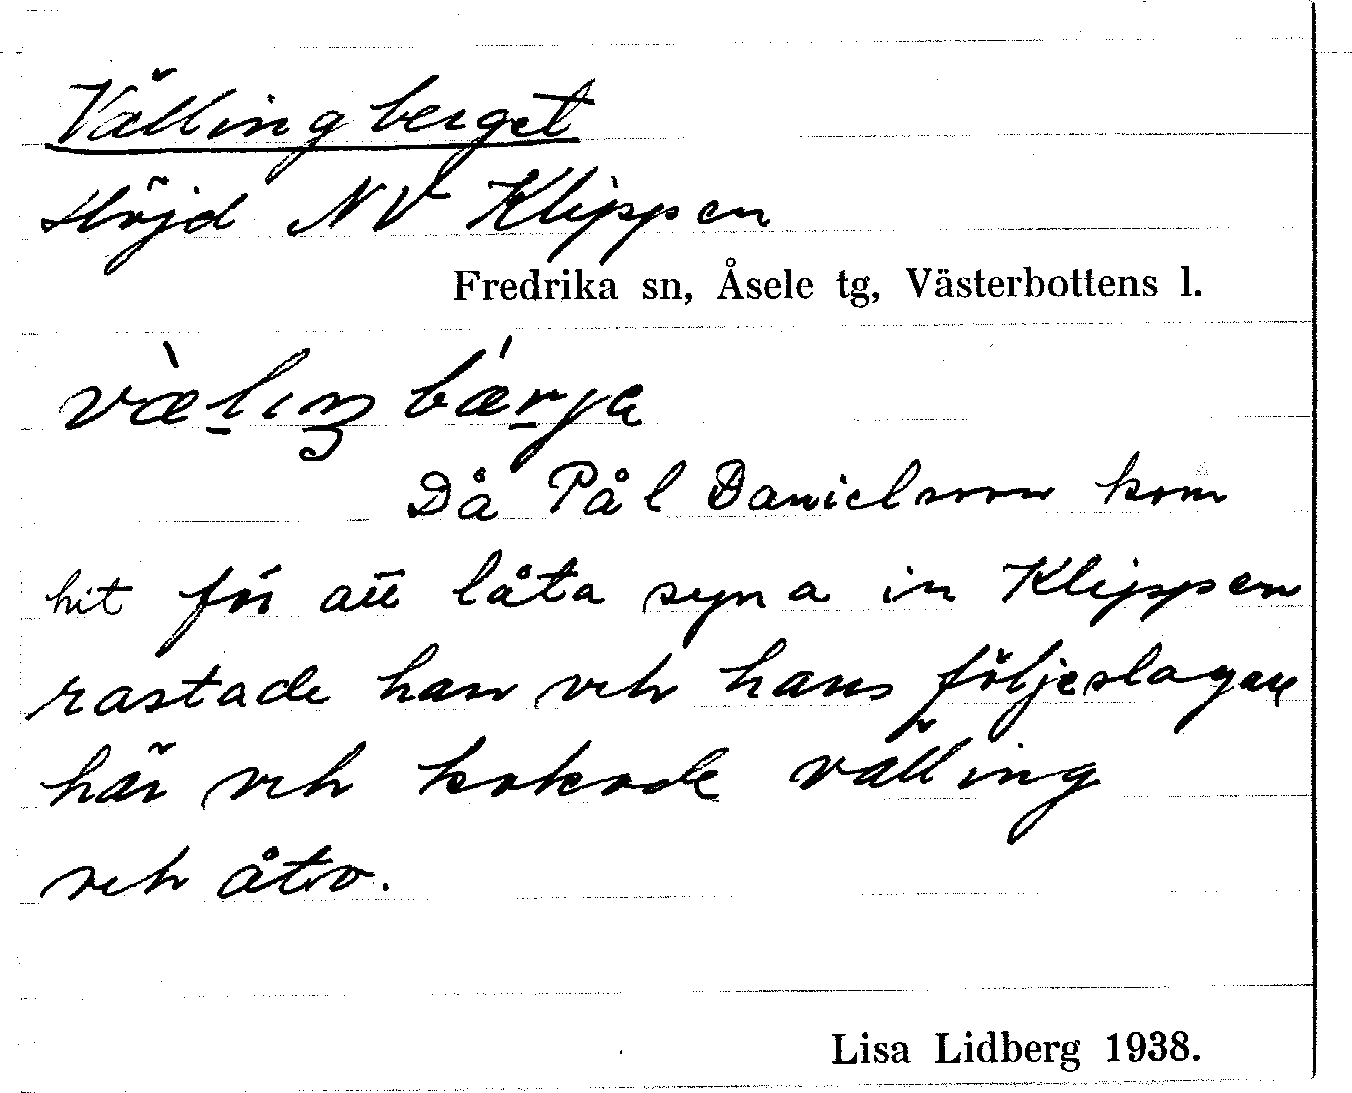 Vällingberget
Höjd NV Klippen
Fredrika sn, Åsele tg, Västerbottens l.
væ̀lıŋbǽrjɐ
Då Pål Danielsson kom
hit för att låta syna in Klippen
rastade han och hans följeslagare
här och kokade välling
och åto.
Lisa Lidberg 1938.